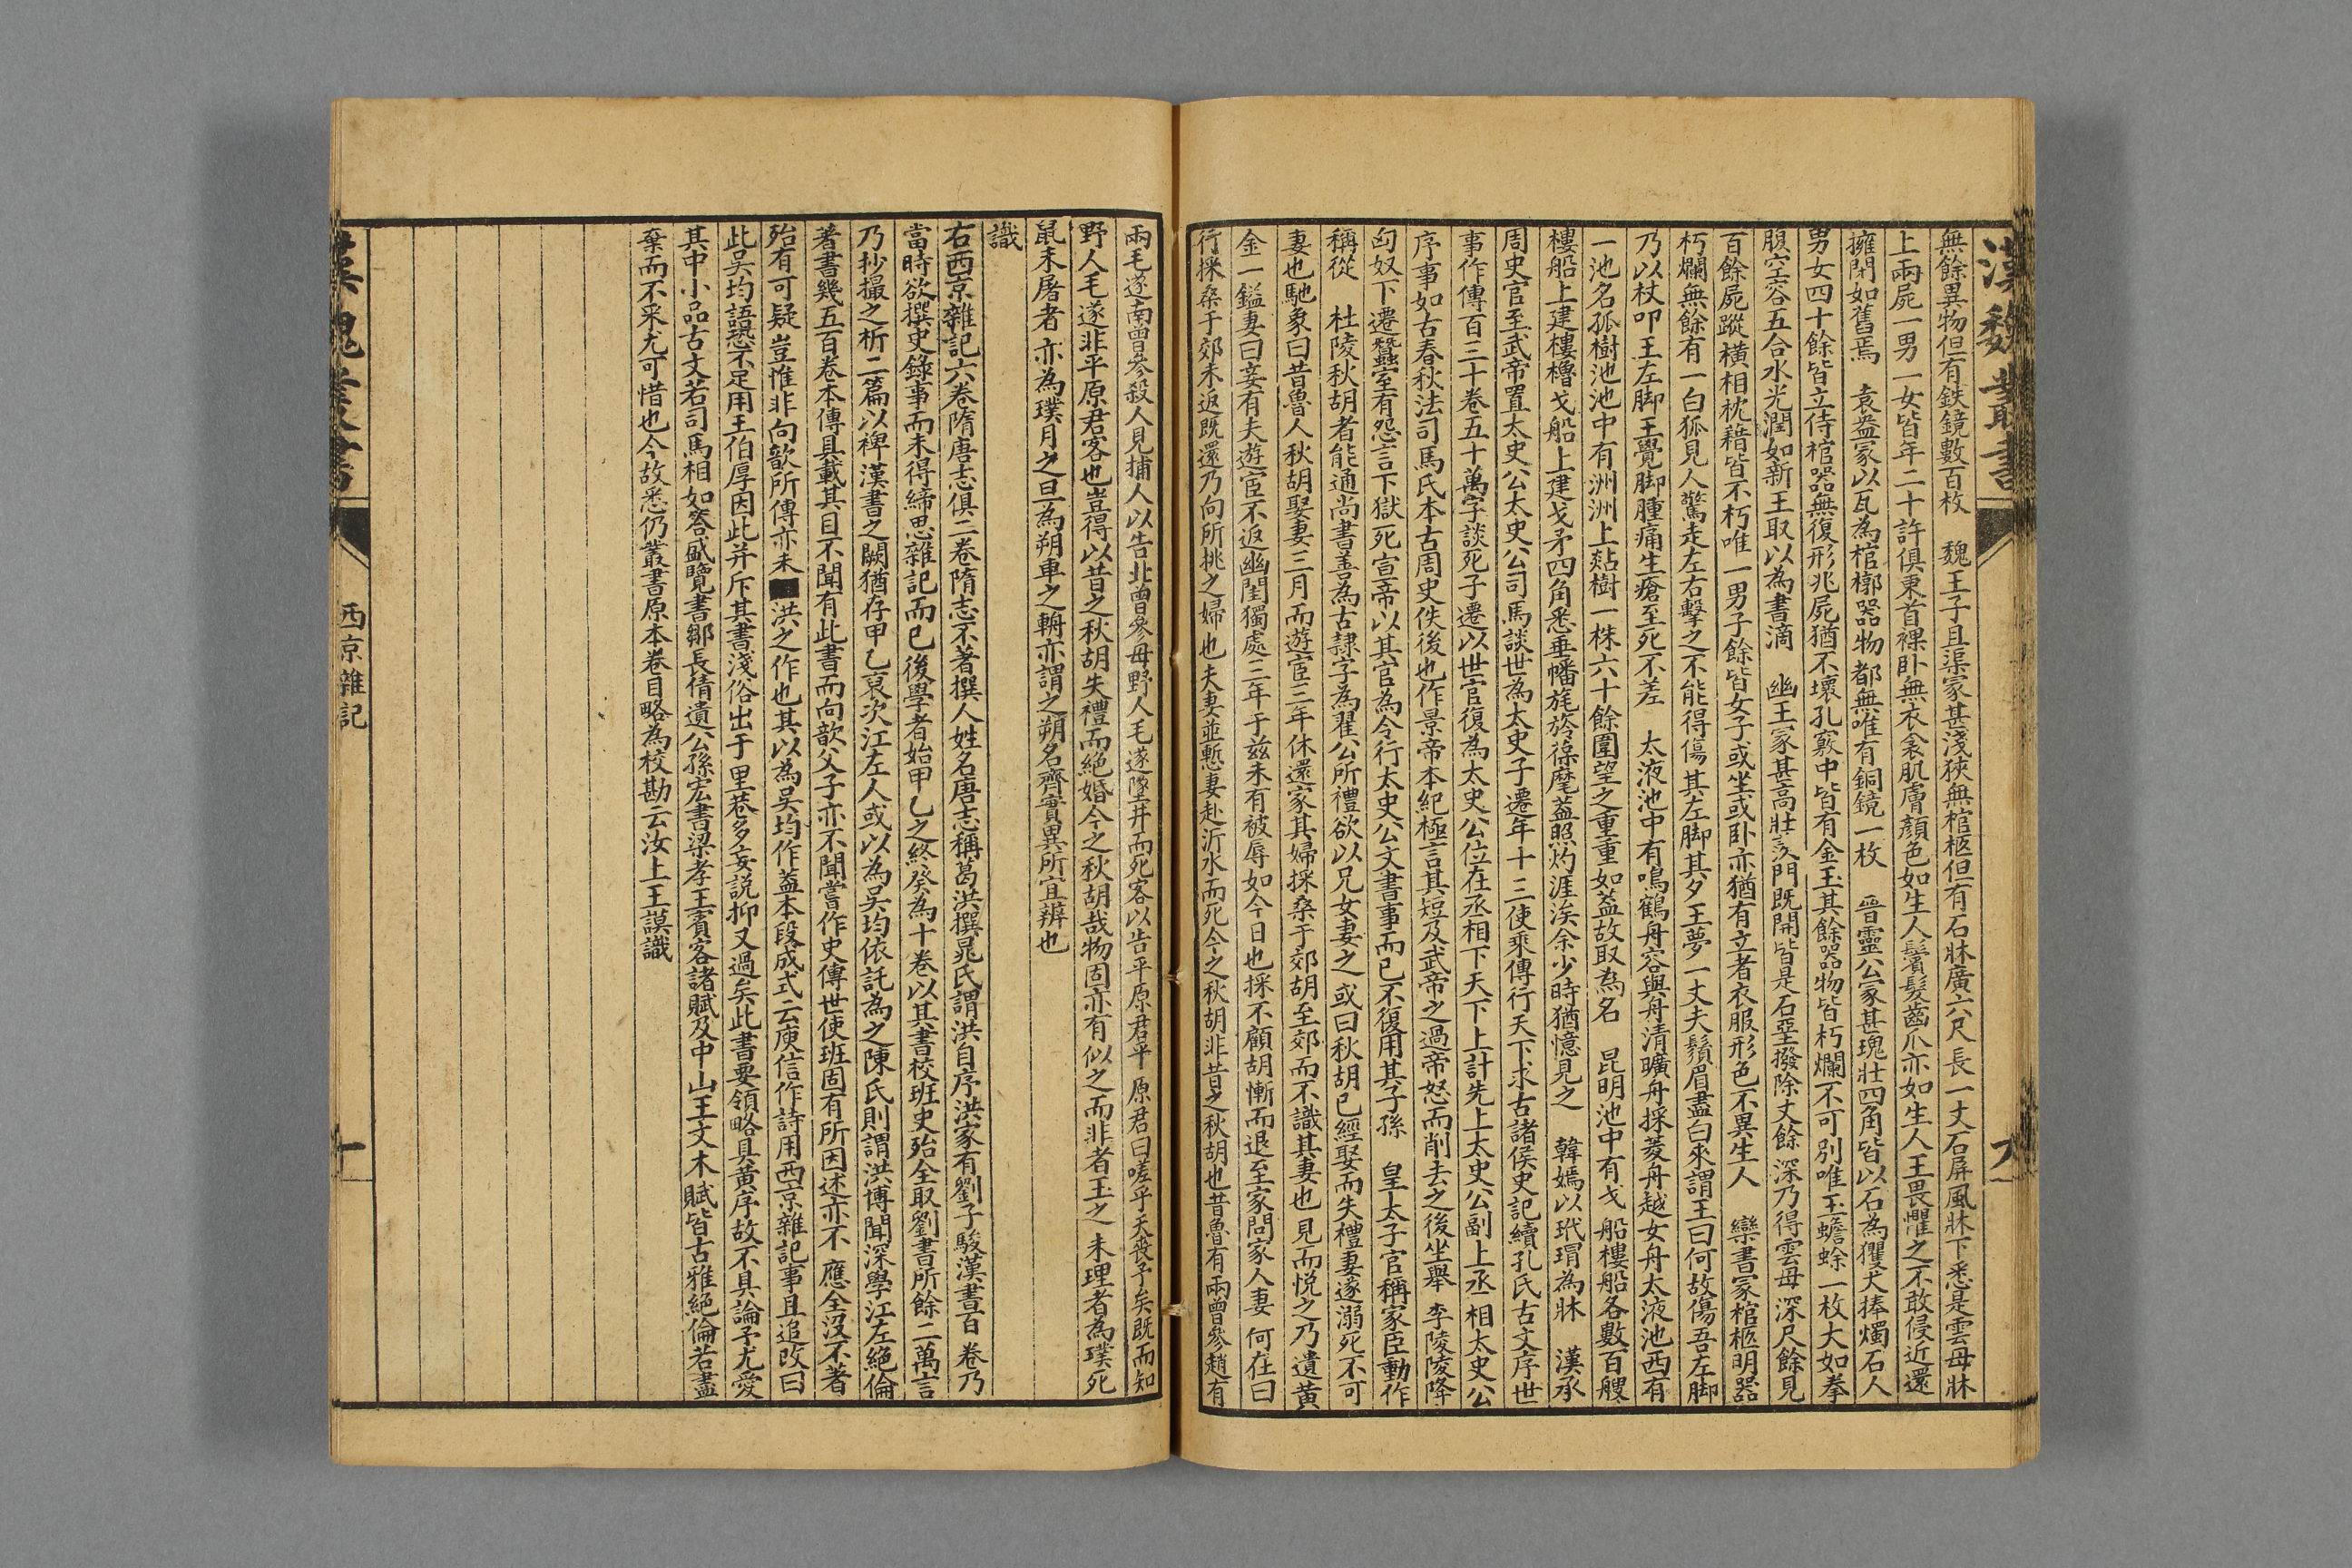 漢魏叢書
九
無餘異物但有鉄鏡數百枚　魏王子且渠冢甚淺狹無棺柩但有石牀廣六尺長一丈石屏風牀下悉是雲母牀
上兩屍一男一女皆年二十許俱東首裸卧無衣衾肌膚顏色如生人鬢髮齒爪亦如生人王畏懼之不敢侵近還
擁閉如舊焉　袁盎冢以瓦為棺槨器物都無唯有銅鏡一枚　晉靈公冢甚瑰壯四角皆以石為玃犬捧燭石人
男女四十餘皆立侍棺器無復形兆屍猶不壞孔竅中皆有金玉其餘器物皆朽爛不可別唯玉蟾蜍一枚大如拳
腹空容五合水光潤如新王取以為書滴　幽王冢甚高壯羨門既開皆是石堊撥除丈餘深乃得雲母深尺餘見
百餘屍蹤橫相枕藉皆不朽唯一男子餘皆女子或坐或卧亦猶有立者衣服形色不異生人　欒書冢棺柩明器
朽爛無餘有一白狐見人驚走左右擊之不能得傷其左脚其夕王夢一丈夫鬚眉盡白來謂王曰何故傷吾左脚
乃以杖叩王左脚王覺脚腫痛生瘡至死不差　太液池中有鳴鶴舟容與舟清曠舟採菱舟越女舟太液池西有
一池名孤樹池池中有洲洲上煔樹一株六十餘圍望之重重如蓋故取為名　昆明池中有戈船樓船各數百艘
樓船上建樓櫓戈船上建戈矛四角悉垂幡旄旍葆麾蓋照灼涯涘余少時猶憶見之　韓嫣以玳瑁為牀　漢承
周史官至武帝置太史公太史公司馬談世為太史子遷年十三使乘傳行天下求古諸侯史記續孔氏古文序世
事作傳百三十卷五十萬字談死子遷以世官復為太史公位在丞相下天下上計先上太史公副上丞相太史公
序事如古春秋法司馬氏本古周史佚後也作景帝本紀極言其短及武帝之過帝怒而削去之後坐舉李陵陵降
匈奴下遷蠶室有怨言下獄死宣帝以其官為令行太史公文書事而已不復用其子孫　皇太子官稱家臣動作
稱從　杜陵秋胡者能通尚書善為古隸字為翟公所禮欲以兄女妻之或曰秋胡已經娶而失禮妻遂溺死不可
妻也馳象曰昔魯人秋胡娶妻三月而遊宦三年休還家其婦採桑于郊胡至郊而不識其妻也見而悅之乃遺黃
金一鎰妻曰妾有夫遊宦不返幽閨獨處三年于茲未有被辱如今日也採不顧胡慚而退至家問家人妻何在曰
行採桑于郊未返既還乃向所挑之婦也夫妻並慙妻赴沂水而死今之秋胡非昔之秋胡也昔魯有兩曾參趙有
兩毛遂南曾參殺人見捕人以告北曾參母野人毛遂墜井而死客以告平原君平原君曰嗟乎天喪予矣既而知
野人毛遂非平原君客也豈得以昔之秋胡失禮而絕婚今之秋胡哉物固亦有似之而非者玉之未理者為璞死
鼠未屠者亦為璞月之旦為朔車之輈亦謂之朔名齊實異所宜辨也
識
右西京雜記六卷隋唐志俱二卷隋志不著撰人姓名唐志稱葛洪撰晁氏謂洪自序洪家有劉子駿漢書百卷乃
當時欲撰史錄事而未得締思雜記而已後學者始甲乙之終癸為十卷以其書校班史殆全取劉書所餘二萬言
乃抄撮之析二篇以裨漢書之闕猶存甲乙裒次江左人或以為吳均依託為之陳氏則謂洪博聞深學江左絕倫
著書幾五百卷本傳具載其目不聞有此書而向歆父子亦不聞嘗作史傳世使班固有所因述亦不應全沒不著
殆有可疑豈惟非向歆所傳亦未■洪之作也其以為吳均作蓋本段成式云庾信作詩用西京雜記事且追改曰
此吳均語恐不足用王伯厚因此并斥其書淺俗出于里巷多妄說抑又過矣此書要領略具黃序故不具論予尤愛
其中小品古文若司馬相如答盛覽書鄒長倩遺公孫宏書梁孝王賓客諸賦及中山王文木賦皆古雅絕倫若盡
棄而不采尤可惜也今故悉仍叢書原本卷目略為校勘云汝上王謨識
漢魏叢書
西京雜記
十